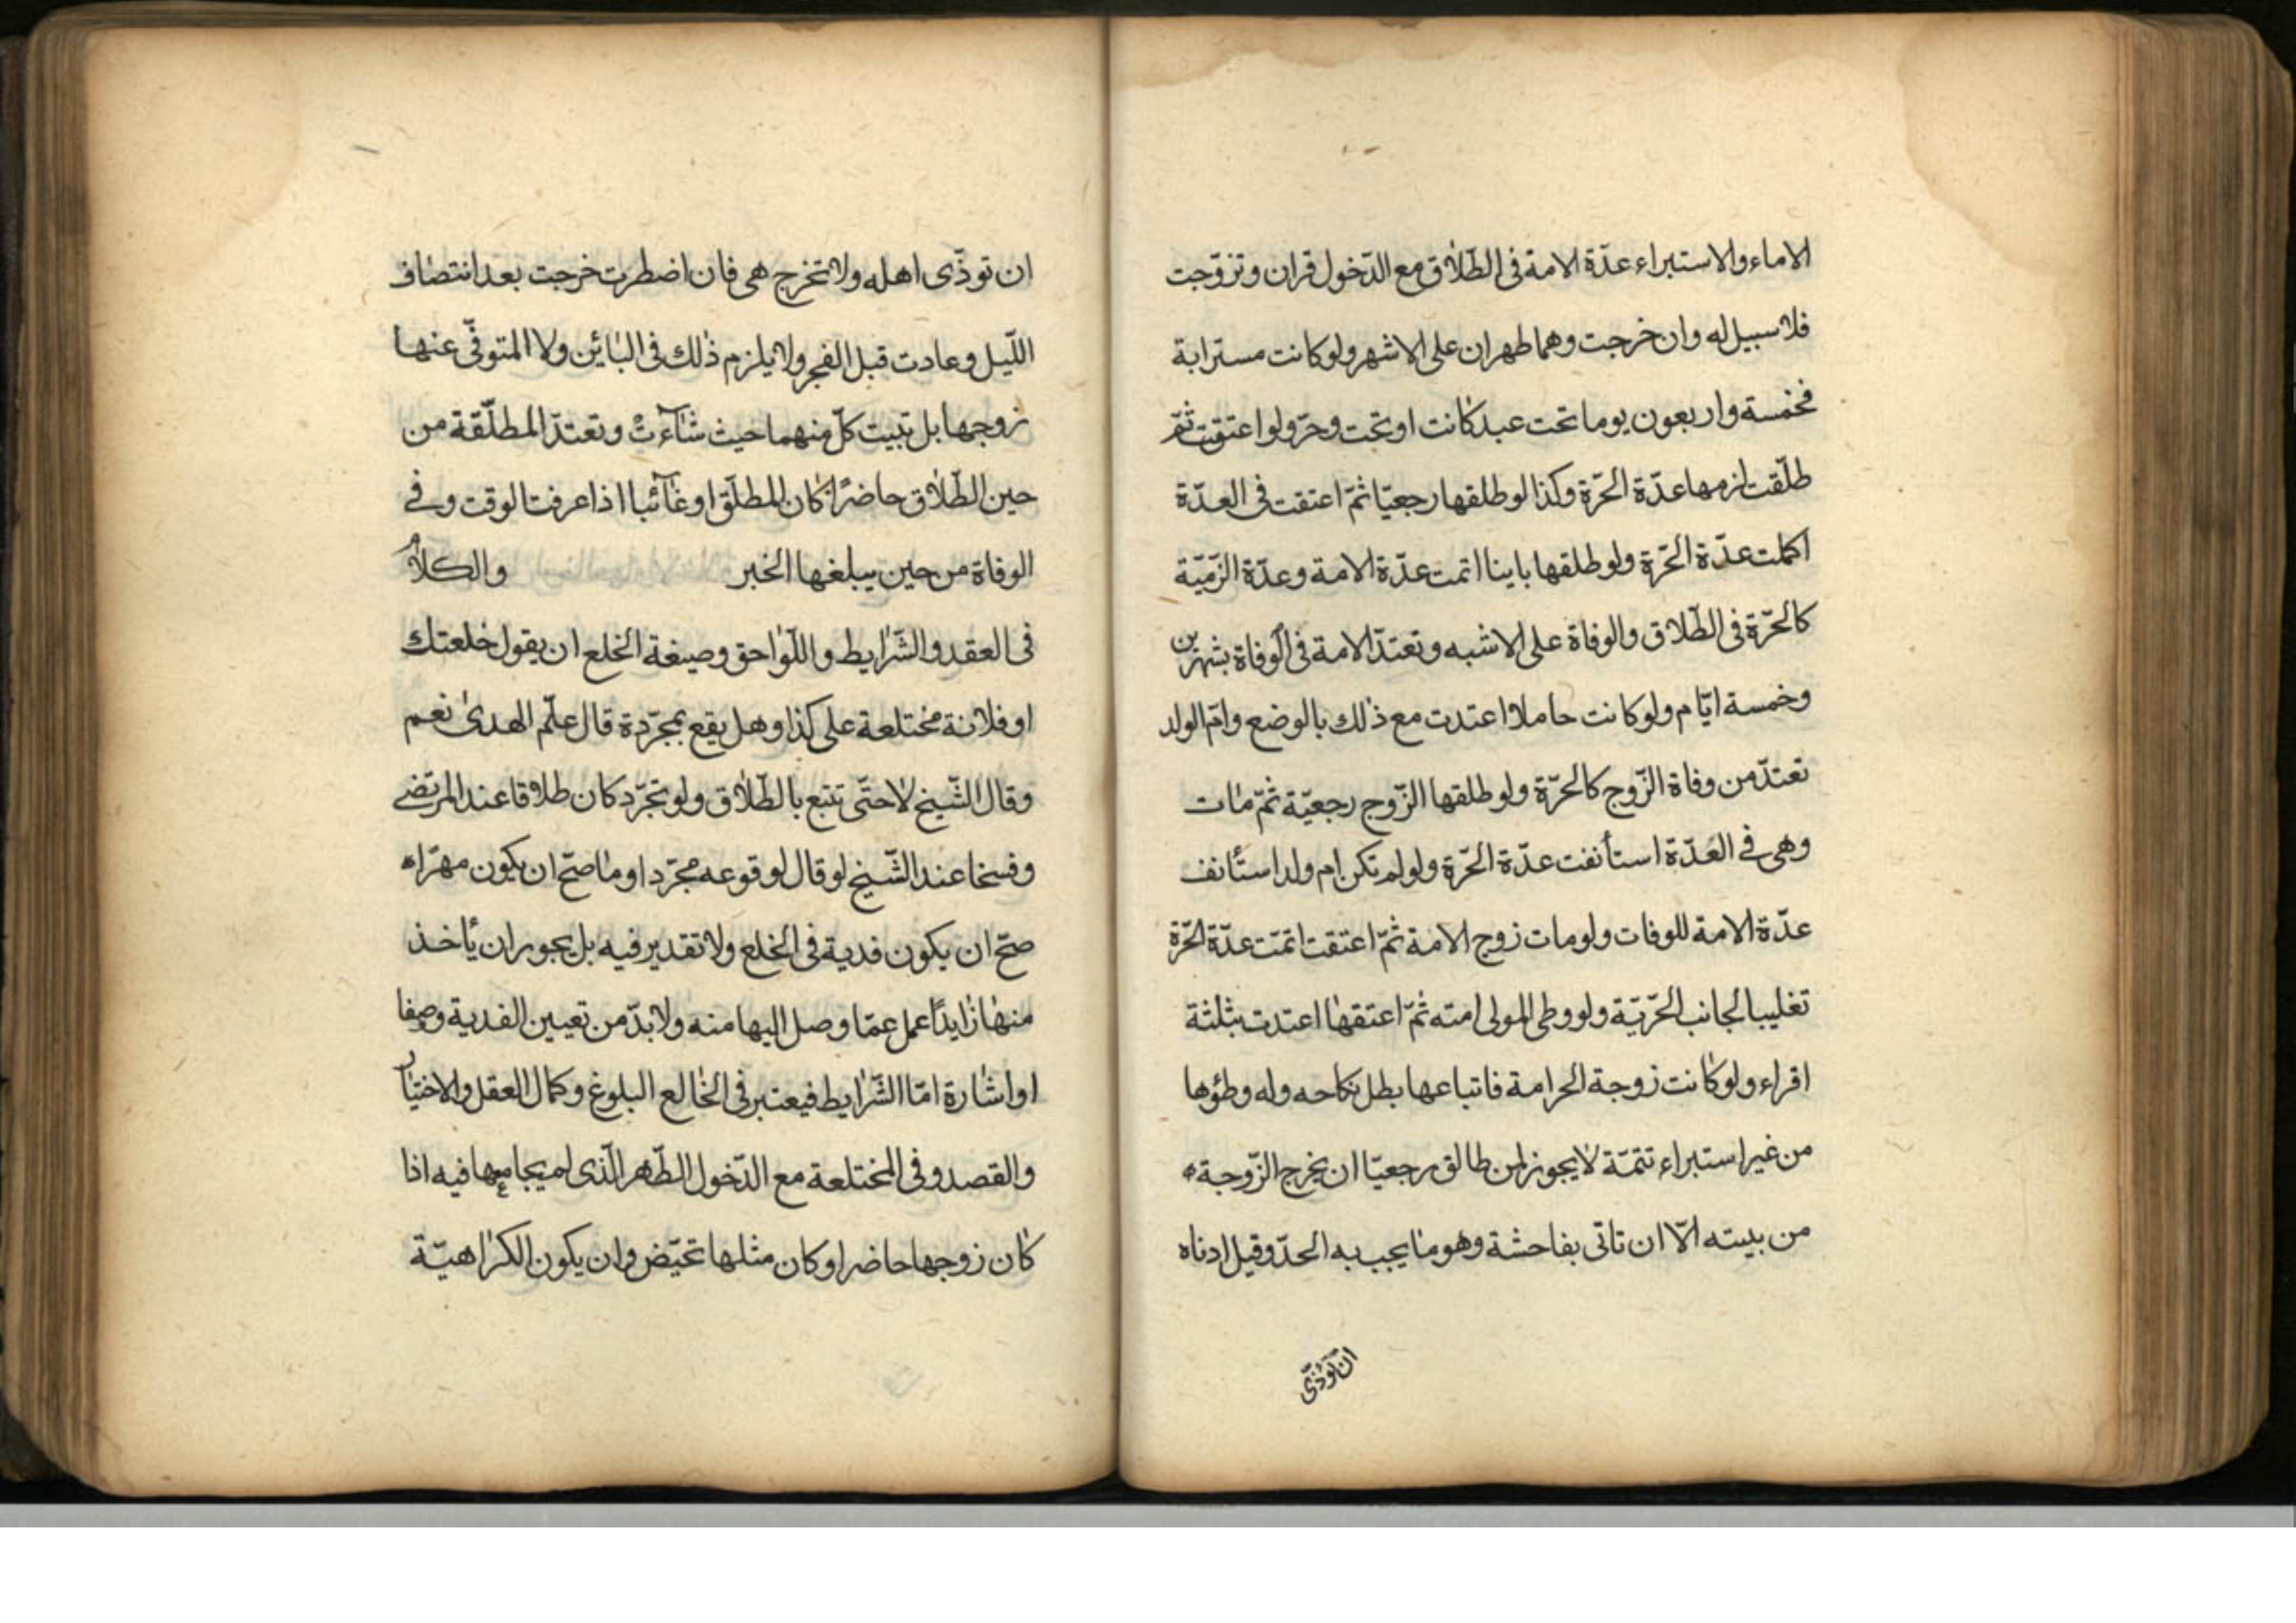 الاماء والاستبراء عدّة الامة فى الطّلاق مع الدّخول قران وتزوّجت
فلا سبيل له وان خرجت وهما طهران على الاشهر ولو كانت مسترابة
فخمسة واربعون يوما تحت عبد كانت او تحت وحرّ ولو اعتقت ثمّ
طلّقت لزمها عدّة الحرّة وكذا لو طلقها رجعيّا ثمّ اعتقت فى العدّة
اكملت عدّة الحرّة ولو طلقها باينا اتمت عدّة الامة وعدّة الزّميّة
كالحرّة فى الطّلاق والوفاة على الاشبه وتعتدّ الامة فى الوفاة بشهرين
وخمسة ايّام ولو كانت حاملا اعتدت مع ذلك بالوضع وامّ الولد
تعتدّ من وفاة الزّوج كالحرّة ولو طلقها الزّوج رجعيّة ثمّ مات
وهى فى العدّة استأنفت عدّة الحرّة ولو لم تكن ام ولد استأنف
عدّة الامة للوفات ولو مات زوج الامة ثمّ اعتقت اتمّت عدّة الحرّة
تغليبا لجانب الحرّيّة ولو وطى المولى امته ثمّ اعتقها اعتدت بثلثة
اقراء ولو كانت زوجة الحر امة فاتباعها بطل نكاحه وله وطؤها
من غير استبراء تتمّة لا يجوز لمن طالق رجعيّا ان يخرج الزّوجة
من بيته الّا ان تاتى بفاحشة وهو ما يجب به الحدّ وقيل ادناه
ان توذّى
ان توذّى اهله ولا تخرج هى فان اضطرت خرجت بعد انتصاف
اللّيل وعادت قبل الفجر ولا يلزم ذلك فى البائن ولا المتوفّى عنها
زوجها بل تبيت كلّ منهما حيث شآءتْ وتعتدّ المطلّقة من
حين الطّلاق حاضرًا كان المطلّق او غآئبا اذا عرفت الوقت وفى
الوفاة من حين يبلغها الخبر والكلام
فى العقد والشّرايط واللّواحق وصيغة الخلع ان يقول خلعتك
او فلانة مختلعة على كذا وهل يقع بمجرّدة قال علّم الهدى نعم
وقال الشّيخ لا حتّى تتبع بالطّلاق ولو تجرّد كان طلاقا عند المرتضى
وفسخا عند الشّيخ لو قال لوقوعه مجرّد او ما صحّ ان يكون مهرّا
صحّ ان يكون فدية فى الخلع ولا تقدير فيه بل يجوز ان يأخذ
منها زايدًا عمل عمّا وصل اليها منه ولا بدّ من تعيين الفدية وصفا
او اشارة امّا الشّرايط فيعتبر فى الخالع البلوغ وكمال العقل والاختيار
والقصد وفى المختلعة مع الدّخول الطّهر الّذى لم يجامعها فيه اذا
كان زوجها حاضرا وكان مثلها تحيّض وان يكون الكراهيّة